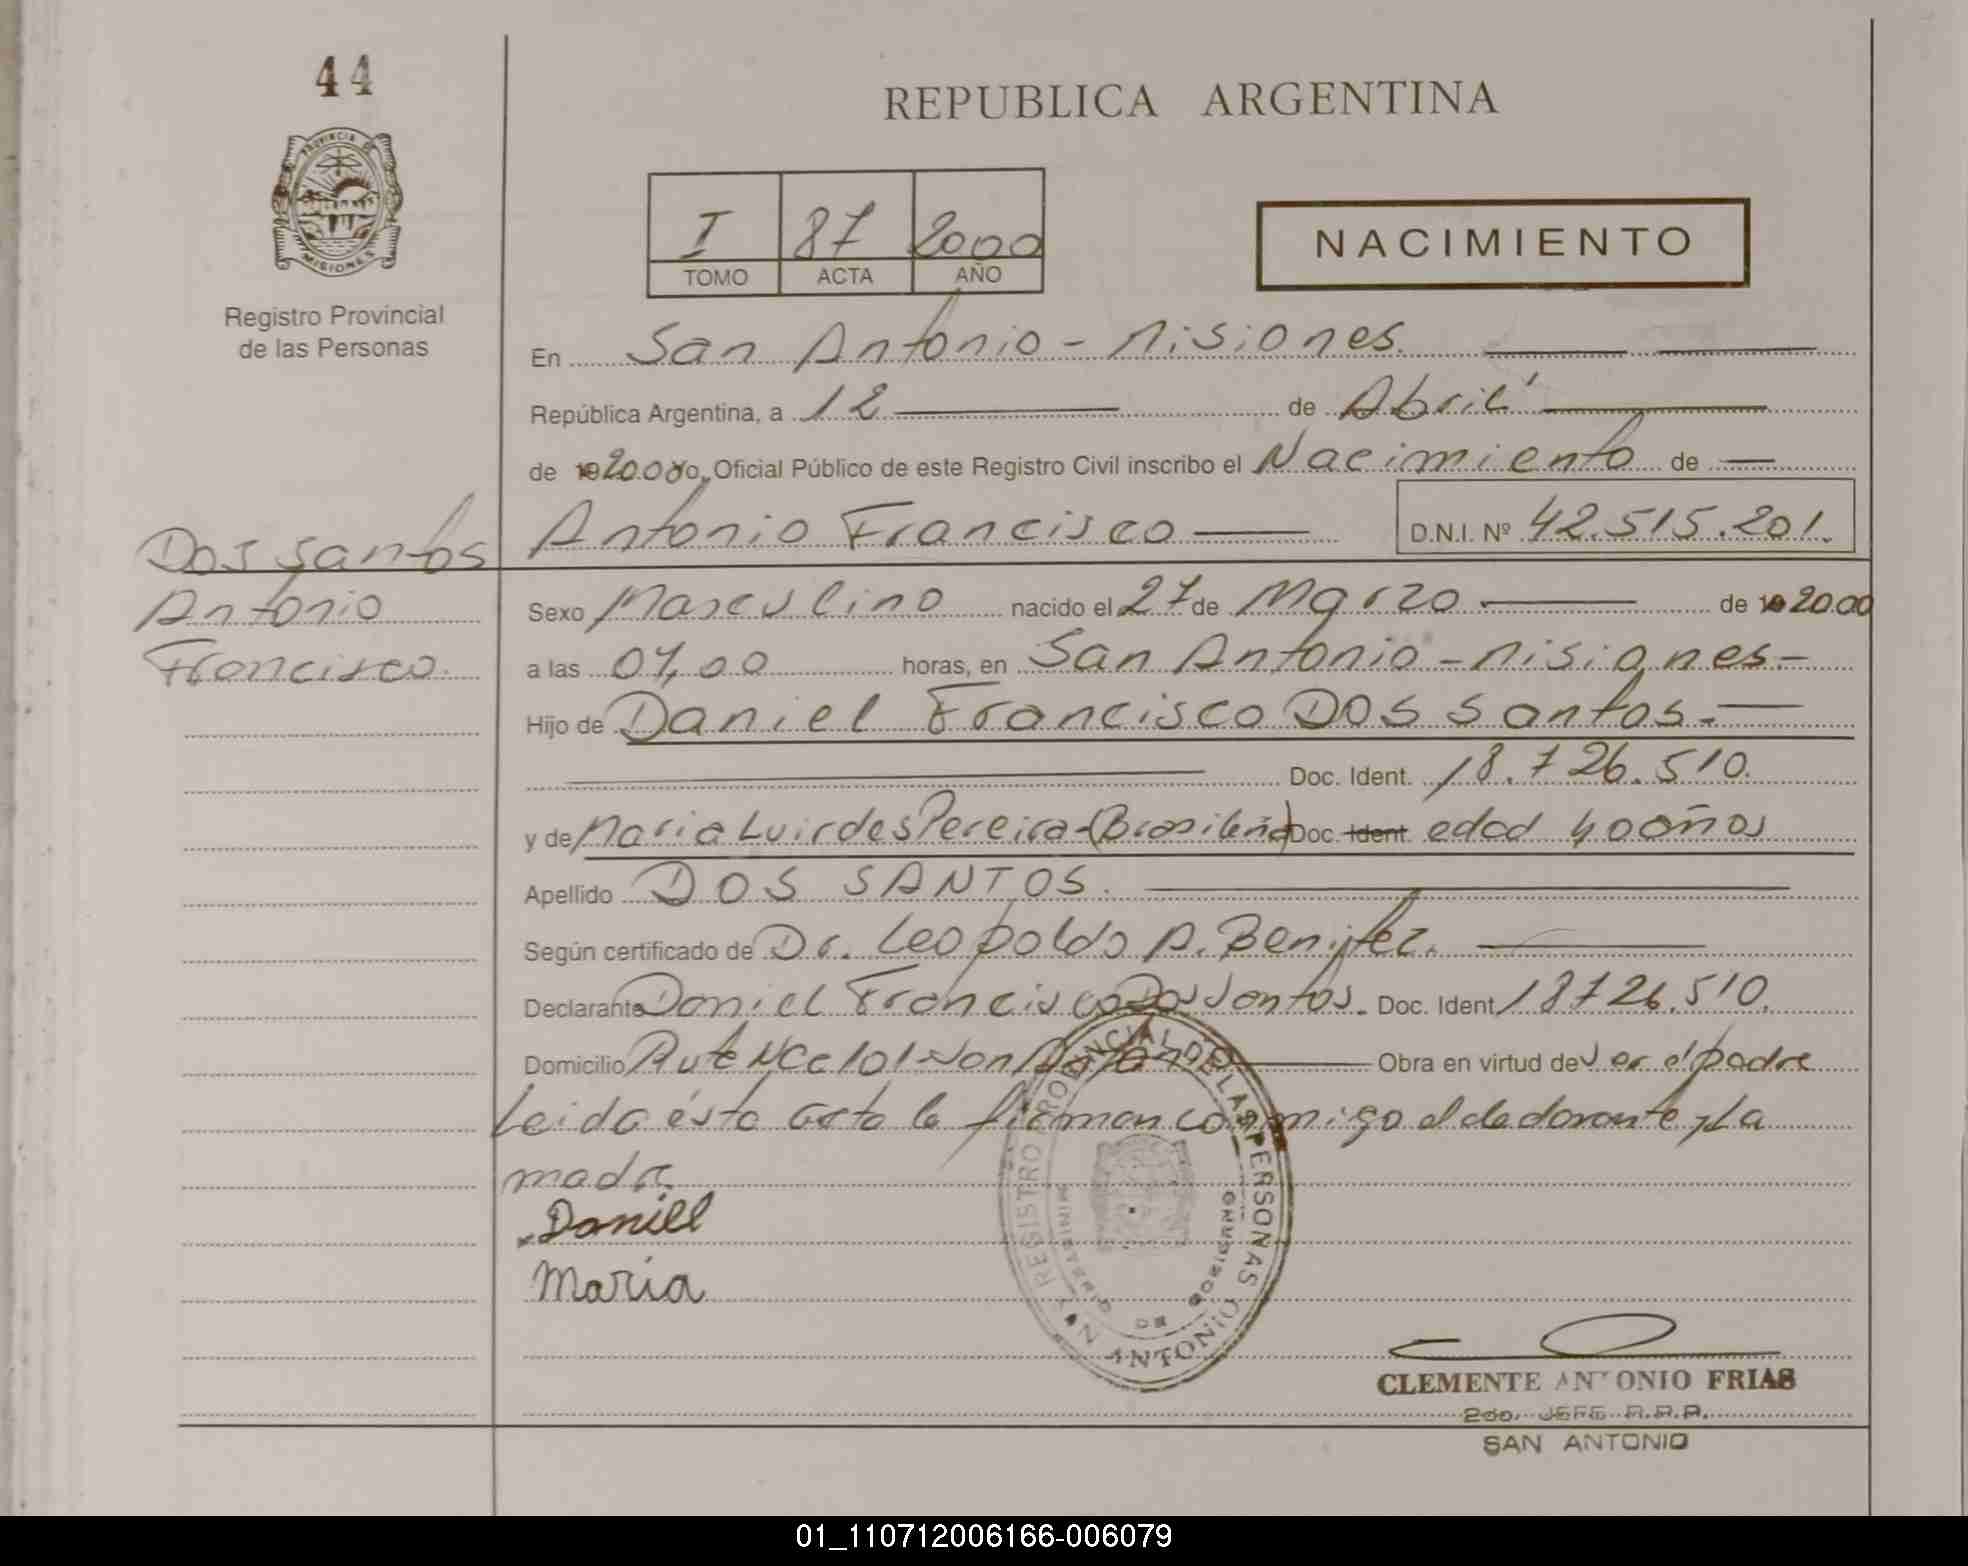 44
REPUBLICA ARGENTINA
PROVINCIA DE
MISIONES
Registro Provincial
de las Personas
I 87 2000
TOMO ACTA AÑO
NACIMIENTO
En San Antonio - Misiones.
República Argentina, a 12 de Abril
de 2000 yo, Oficial Público de este Registro Civil inscribo el Nacimiento de
Dos santos
Antonio
Francisco.
Antonio Francisco D.N.I. Nº 42.515.201.
Sexo Masculino nacido el 27 de Marzo de 2000
a las 07,00 horas, en San Antonio - Misiones -
Hijo de Daniel Francisco DOS Santos.
Doc. Ident. 18.726.510.
y de Maria Luirdes Pereira - (Brasileña) Doc. Ident. edad 40 años
Apellido DOS SANTOS.
Según certificado de Dr. Leopoldo A. Benitez.
Declarante Daniel Francisco Dos Santos. Doc. Ident. 18726.510.
Domicilio Ruta Nac 101 - San Antonio Obra en virtud de ser el padre
Leida ésta acta la firman conmigo el declarante y La
madre.
Daniel
Maria
REGISTRO PROVINCIAL DE LAS PERSONAS
MINISTERIO DE GOBIERNO
ANTONIO
CLEMENTE ANTONIO FRIAS
2do. JEFE R.R.P.
SAN ANTONIO
01_110712006166-006079